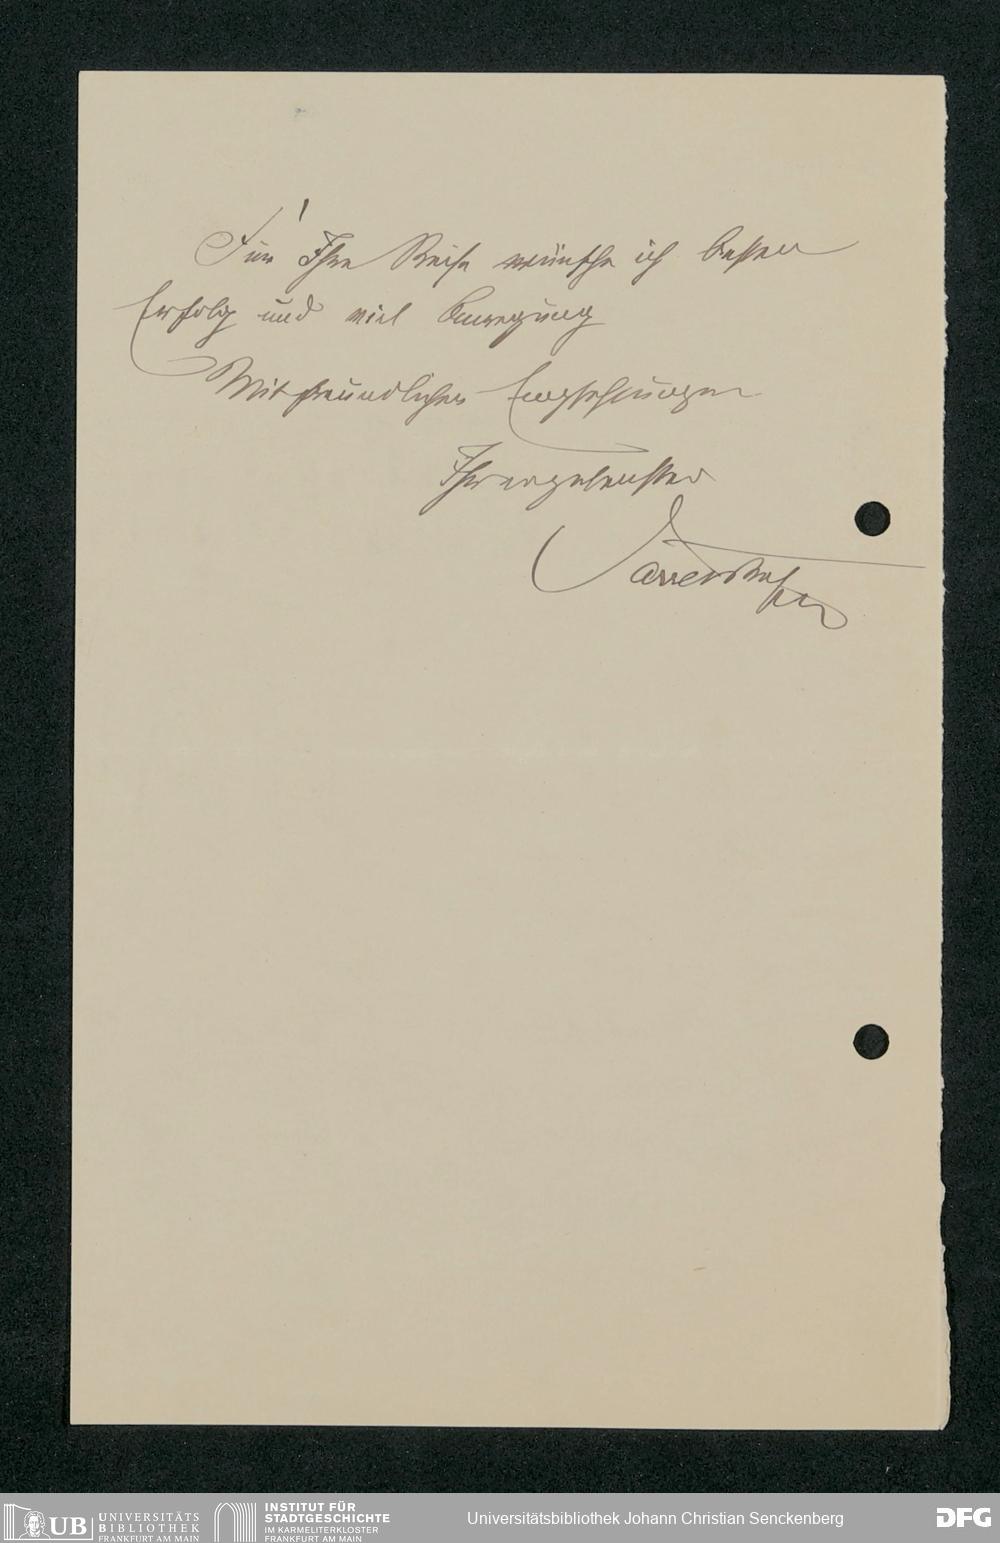 Für Ihre Reise wünsche ich besten
Erfolg und viel Anregung
Mit freundlichen Empfehlungen
Ihr ergebenster
UB
UNIVERSITÄTS
BIBLIOTHEK
FRANKFURT AM MAIN
INSTITUT FÜR
STADTGESCHICHTE
IM KARMELITERKLOSTER
FRANKFURT AM MAIN
Universitätsbibliothek Johann Christian Senckenberg
DFG